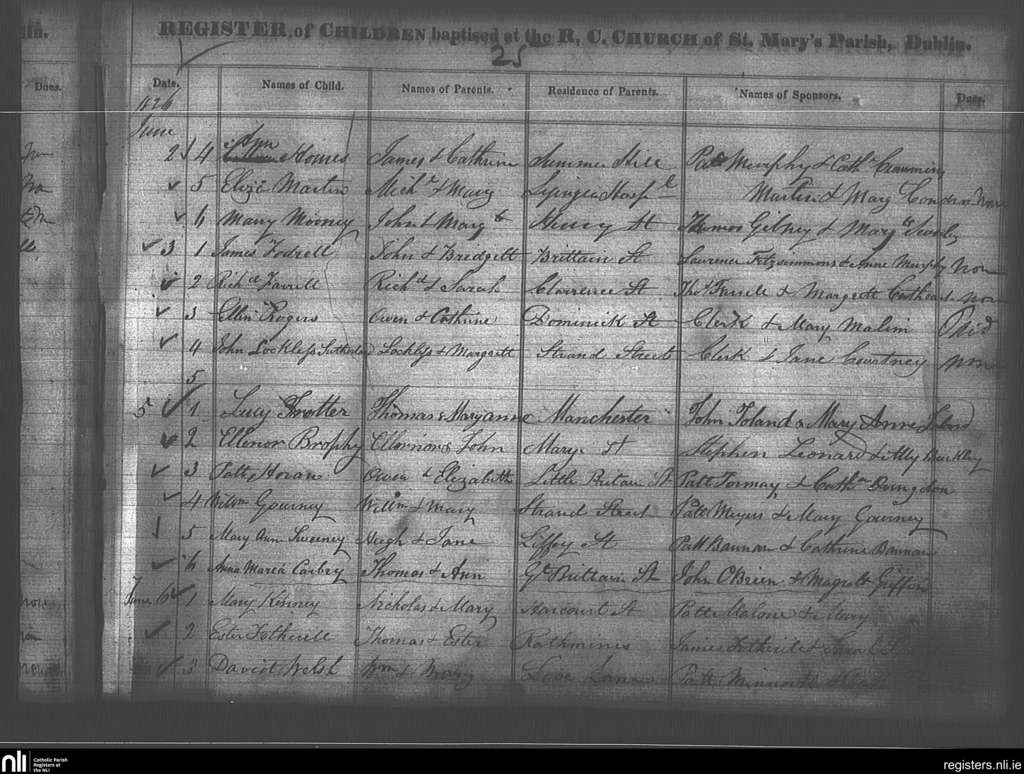 REGISTER of CHILDREN baptised at the R. C. CHURCH of St. Mary's Parish, Dublin.
25
Dues. Date. Names of Child. Names of Parents. Residence of Parents. Names of Sponsors. Dues.
1826
June
2 4 Ann Holmes James & Cathrine Summer Hill Patt Murphy & Cath
5 Eliza Martin Mich & Mary Martin & Mary
6 Mary Mooney John & Mary Henry St Thomas & Mary
3 1 James John & Bredgett Brittain St Laurence Fitzsimmons & Anne Murphy Non
2 Richd Farrell Richd & Sarah Clarrence St Thos Farrell & Margrett non
3 Ellin Rogers Owen & Cathrine Dominick St Clerk & Mary Malin Paid
4 John Lockless Sutherland Lockless & Margrett Strand Street Clerk & Jane Courtney non
5
5 1 Lucy Trotter Thomas & Maryanne Manchester John Toland & Mary Anne Toland
2 Ellenor Brophy Ellornor & John Marys St Stephen Leonard & Ally Buckley
3 Patt Horan Owen & Elizabeth Little Britain St Patt Tormay & Cath
4 Willm Gourney Willm & Mary Strand Street Patt Meyers & Mary Gourney
5 Mary Ann Sweeney Hugh & Jane Liffey St Patt Bannan & Cathrine Bannan
6 Anna Maria Carbry Thomas & Ann Gt Brittain St John OBrien & Magrett Griffin
June 6 1 Mary Kinney Nicholas & Mary Harcourt St Patt Malone & Mary
2 Ester Fetherill Thomas & Ester Rathmines James &
3 David Welsh Wm & Mary Love Lane Patt
nli Catholic Parish Registers at the NLI
registers.nli.ie